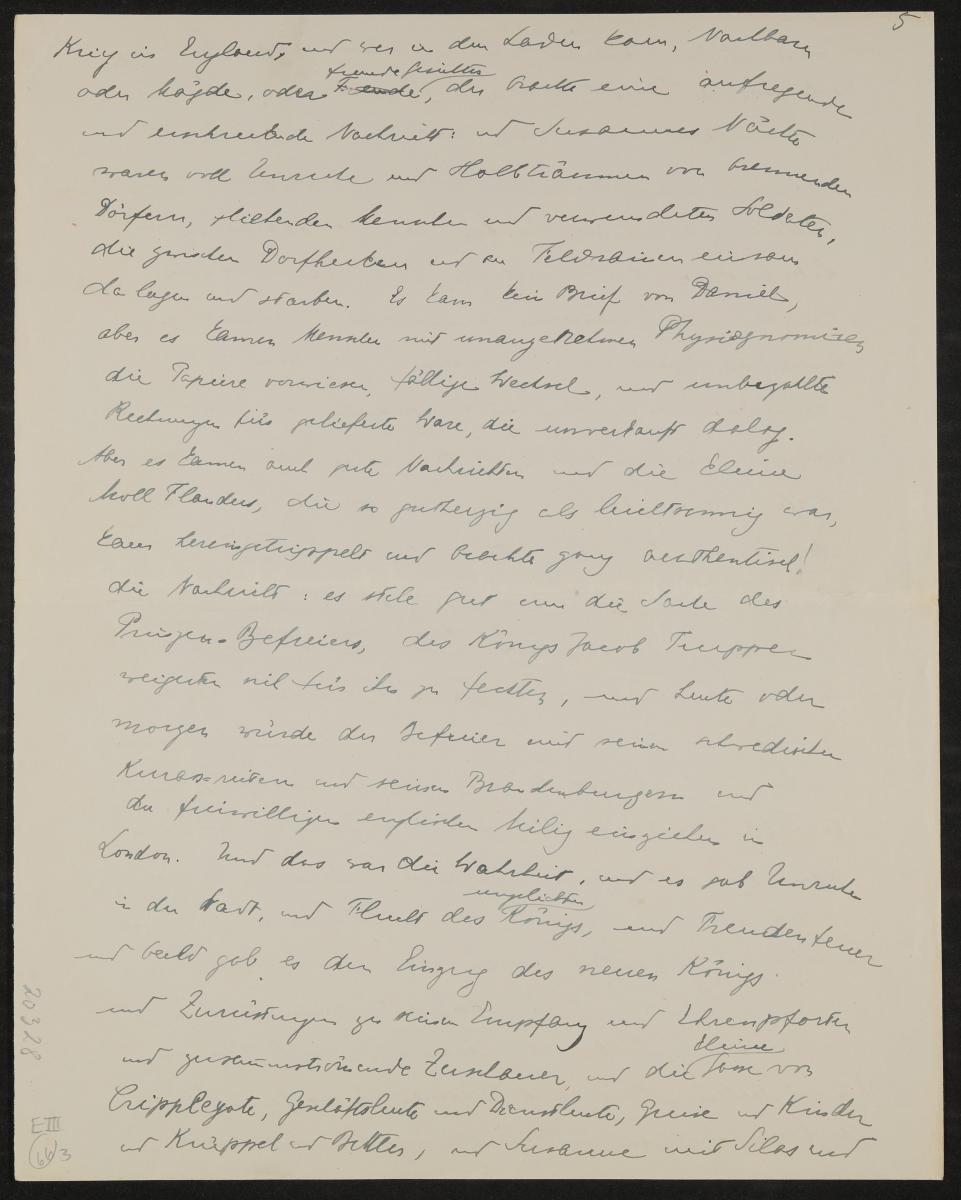 5
Krieg in England, und wer in den Laden kam, Nachbarn
fremde Gesichter
oder Mägde, oder Fremde, der brachte eine aufregende
und erschreckende Nachricht: und Susannes Nächte
waren voll Unruhe und Halbträumen von brennenden
Dörfern, fliehenden Menschen und verwundeten Soldaten,
die zwischen Dorfhecken und an Feldrainen einsam
da lagen und starben. Es kam kein Brief von Daniel,
aber es kamen Menschen mit unangenehmen Physiognomieen
die Papiere vorwiesen, fällige Wechsel, und unbezahlte
Rechnungen für gelieferte Ware, die unverkauft dalag.
Aber es kamen auch gute Nachrichten und die kleine
Moll Flanders, die so gutherzig als leichtsinnig war,
kam hereingetrippelt und brachte ganz authentisch!
die Nachricht: es stehe gut um die Sache des
Prinzen-Befreiers, des Königs Jacob Truppen
weigerten sich für ihn zu fechten, und heute oder
morgen würde der Befreier mit seinen schwedischen
Kürass-reitern und seinen Brandenburgern und
der freiwilligen englischen Miliz einziehen in
London. Und das war die Wahrheit, und es gab Unruhe
ungeliebten
in der Stadt, und Flucht des Königs, und Freudenfeuer
und bald gab es den Einzug des neuen Königs.
und Zurüstungen zu seinem Empfang und Ehrenpforten
kleine
und zusammenströmende Zuschauer, und die von
Cripplegate, Geschäftsleute und Dienstleute, Greise und Kinder
und Krüppel und Bettler, und Susanne mit Silas und
20328
EIII
66/3